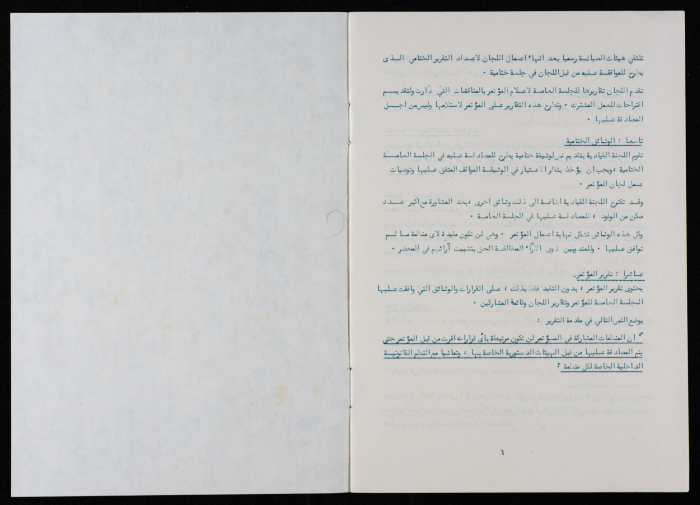 تلتقي هيئات الصياغة رسميا بعد انتهاء اعمال اللجان لاعداد التقرير الختامي الذى
يطرح للموافقة عليه من قبل اللجان في جلسة ختامية .
تقدم اللجان تقاريرها للجلسة العامة لاعلام المؤتمر بالمناقشات التي دارت ولتقديم
اقتراحات للعمل المشترك . وتطرح هذه التقارير على المؤتمر لاستلامها وليس من اجل
المصادقة عليها .
تاسعا : الوثائق الختامية
تقوم اللجنة القيادية بتقديم نص لوثيقة ختامية يطرح للمصادقة عليه في الجلسة العامة
الختامية ، ويجب ان يؤخذ بنظر الاعتبار في الوثيقة المواقف المتفق عليها وتوصيات
عمل لجان المؤتمر .
وقد تقترح اللجنة القيادية اضافة الى ذلك وثائق اخرى ، بعد المشاورة مع اكبر عدد
ممكن من الوفود ، للمصادقة عليها في الجلسة العامة .
وكل هذه الوثائق تشكل نهاية اعمال المؤتمر . وهي لن تكون ملزمة لاى منظمة ما لم
توافق عليها . وللمندوبين ذوى الآراء المخالفة الحق بتثبيت آرائهم في المحضر .
عاشرا : تقرير المؤتمر
يحتوى تقرير المؤتمر ، بدون التقيد فقط بذلك ، على القرارات والوثائق التي وافقت عليها
الجلسة العامة للمؤتمر وتقارير اللجان وقائمة المشاركين .
يوضع النص التالي في مقدمة التقرير :
" ان المنظمات المشاركة في المؤتمر لن تكون مرتبطة بأى قرارات اقرت من قبل المؤتمر حتى
يتم المصادقة عليها من قبل الهيئات الدستورية الخاصة بها ، وتماشيا مع النظم القانونية
الداخلية الخاصة لكل منظمة "
٦